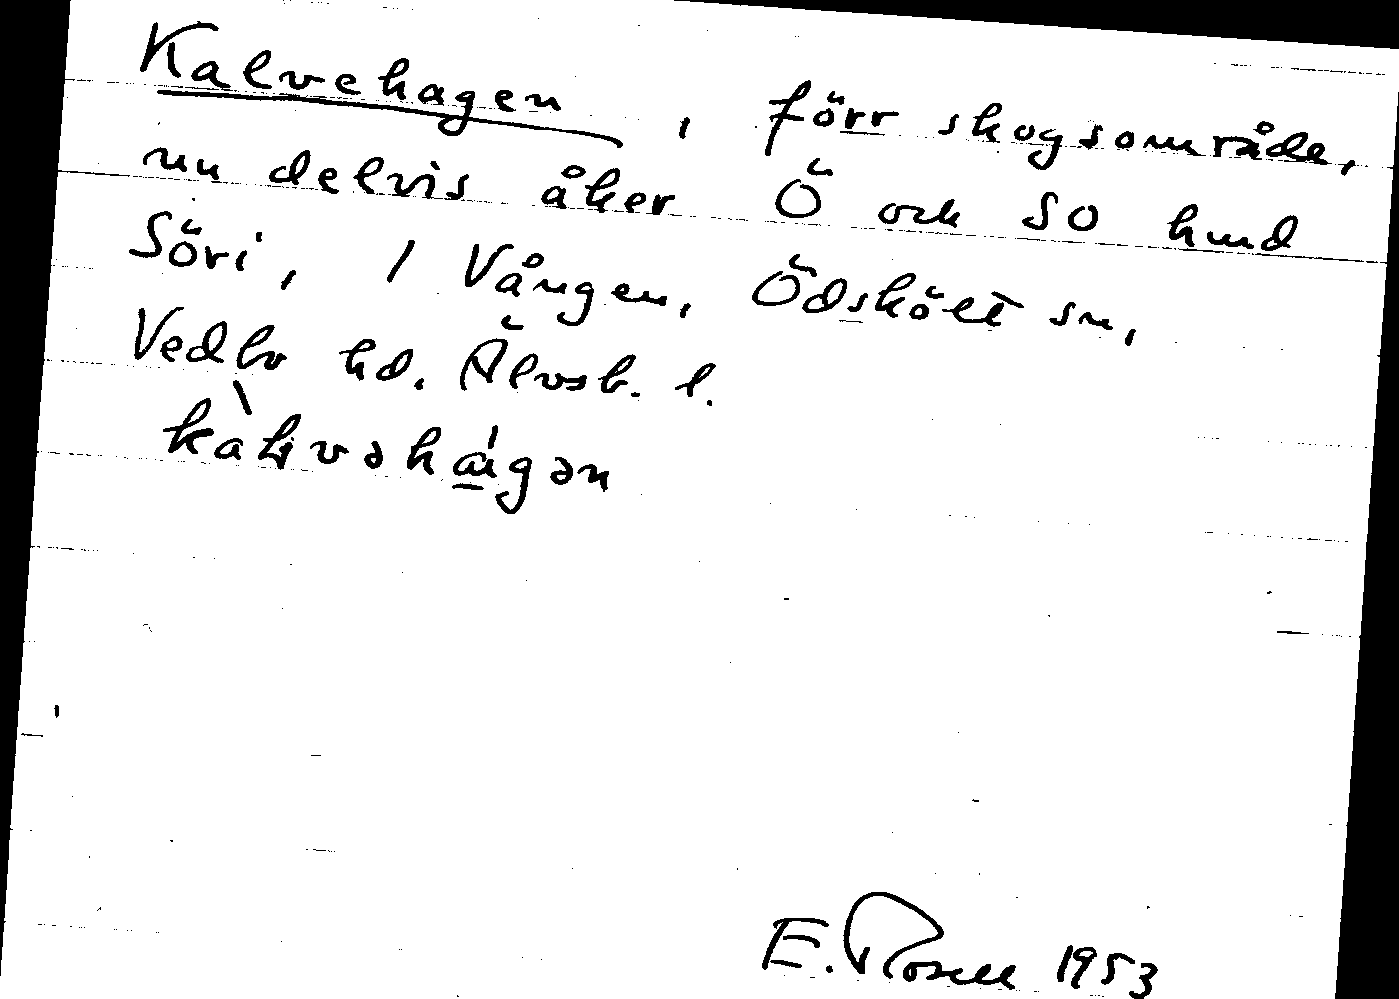 Kalvehagen, förr skogsområde,
nu delvis åker Ö och SO hmd
Söri, 1 Vången, Ödskölt sn,
Vedbo hd. Älvsb. l.
E. Rosell 1953